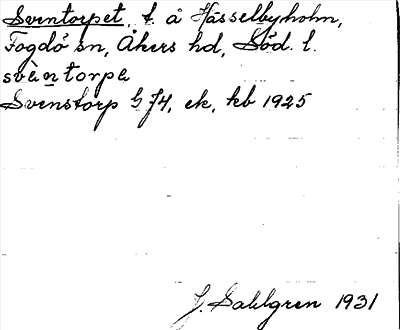 Sventorpet, t. å Hässelbyholm,
Fogdö sn, Åkers hd, Söd. l.
svèntorpe
Svenstorp G 74, ek, kb 1925
J. Sahlgren 1931